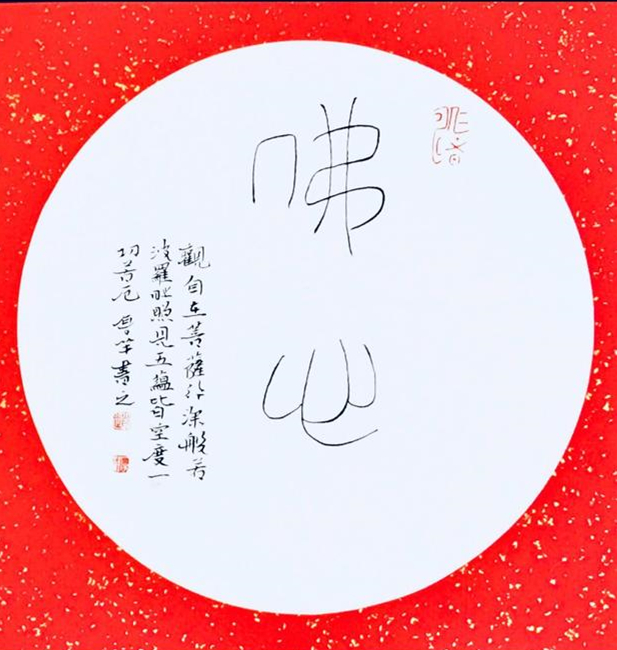 佛心
觀自在菩薩行深般若
波羅時照見五蘊皆空度一
切苦厄 書之